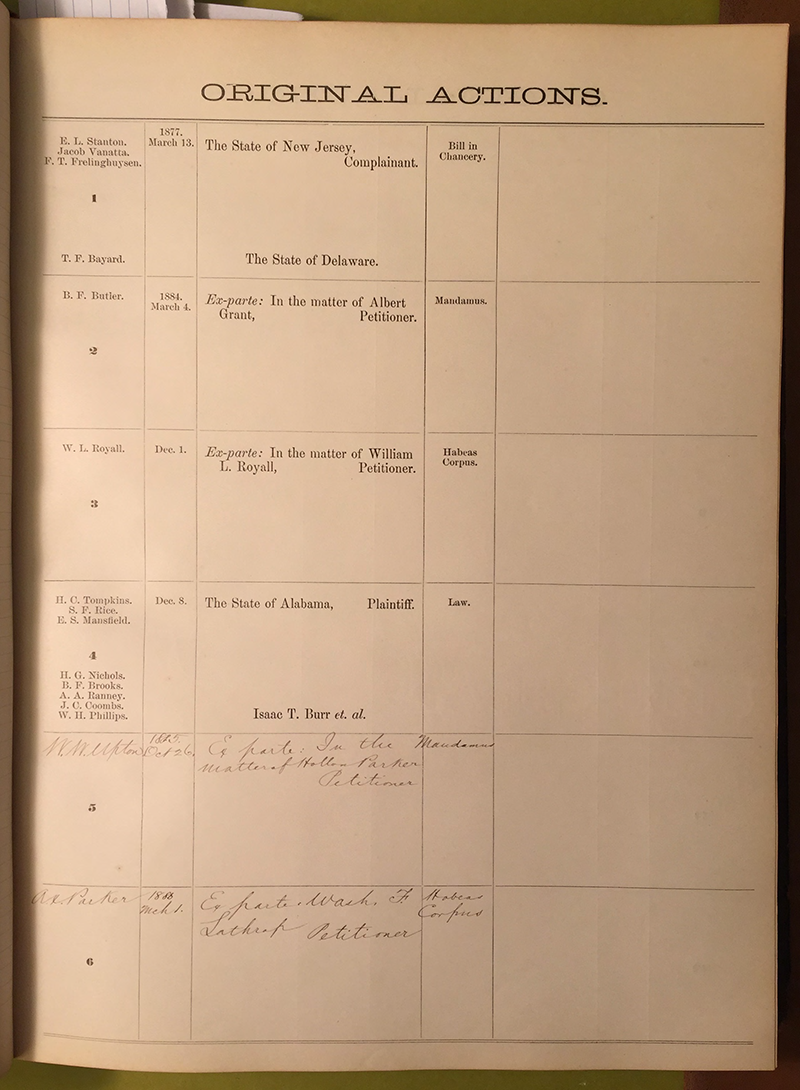 ORIGINAL ACTIONS.
E. L. Stanton.
Jacob Vanatta.
F. T. Frelinghuysen.
1
T. F. Bayard.
1877.
March 13.
The State of New Jersey,
Complainant.
The State of Delaware.
Bill in
Chancery.
B. F. Butler.
2
1884.
March 4.
Ex-parte: In the matter of Albert
Grant, Petitioner.
Mandamus.
W. L. Royall.
3
Dec. 1.
Ex-parte: In the matter of William
L. Royall, Petitioner.
Habeas
Corpus.
H. C. Tompkins.
S. F. Rice.
E. S. Mansfield.
4
H. G. Nichols.
B. F. Brooks.
A. A. Ranney.
J. C. Coombs.
W. H. Phillips.
Dec. 8.
The State of Alabama, Plaintiff.
Isaac T. Burr et. al.
Law.
W. W. Upton
5
1885.
Oct 26.
Ex parte: In the
matter of Hollon Parker
Petitioner
Mandamus
Parker
6
Mch 1.
Ex parte. Wash. F
Lathrop Petitioner
Habeas
Corpus